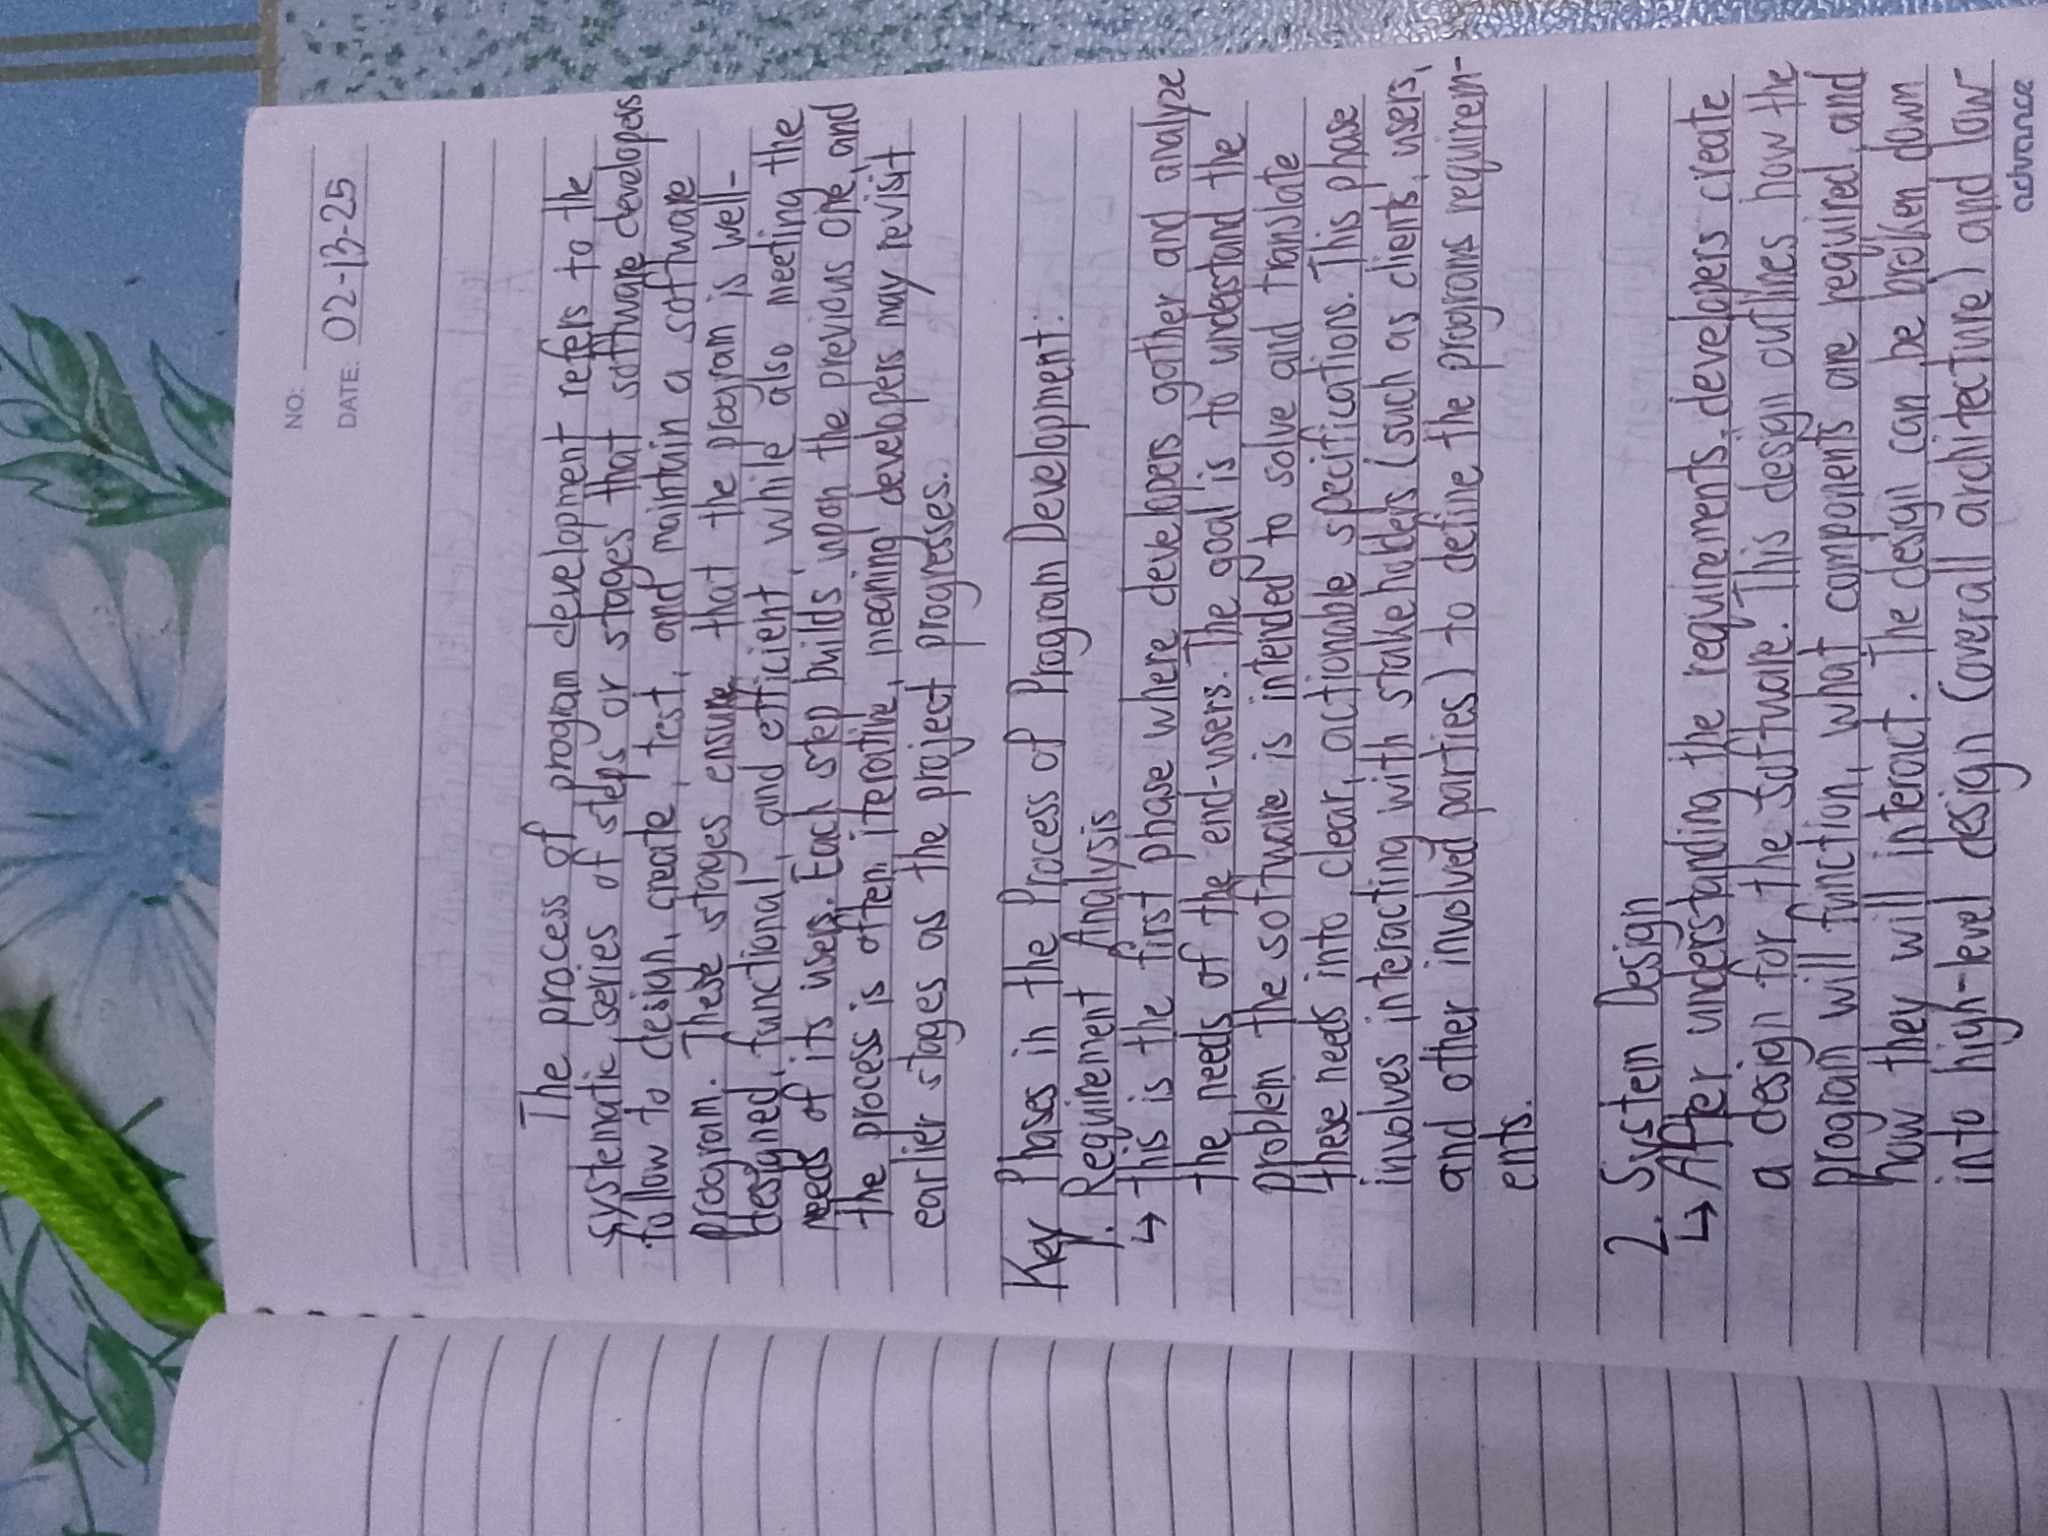 NO:
DATE: 02-13-25
The process of program development refers to the
systematic series of steps or stages that software developers
follow to design, create, test, and maintain a software
program. These stages ensure that the program is well-
designed, functional, and efficient while also meeting the
needs of its users. Each step builds upon the previous one, and
the process is often iterative, meaning developers may revisit
earlier stages as the project progresses.
Key Phases in the Process of Program Development:
1. Requirement Analysis
↳ This is the first phase where developers gather and analyze
the needs of the end-users. The goal is to understand the
problem the software is intended to solve and translate
these needs into clear, actionable specifications. This phase
involves interacting with stakeholders (such as clients, users,
and other involved parties) to define the programs requirem-
ents.
2. System Design
↳ After understanding the requirements, developers create
a design for the software. This design outlines how the
program will function, what components are required, and
how they will interact. The design can be broken down
into high-level design (overall architecture) and low
advance